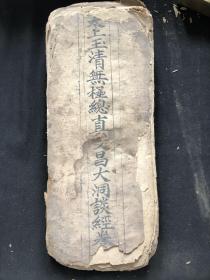 太上玉清無極總真文昌大洞談經卷